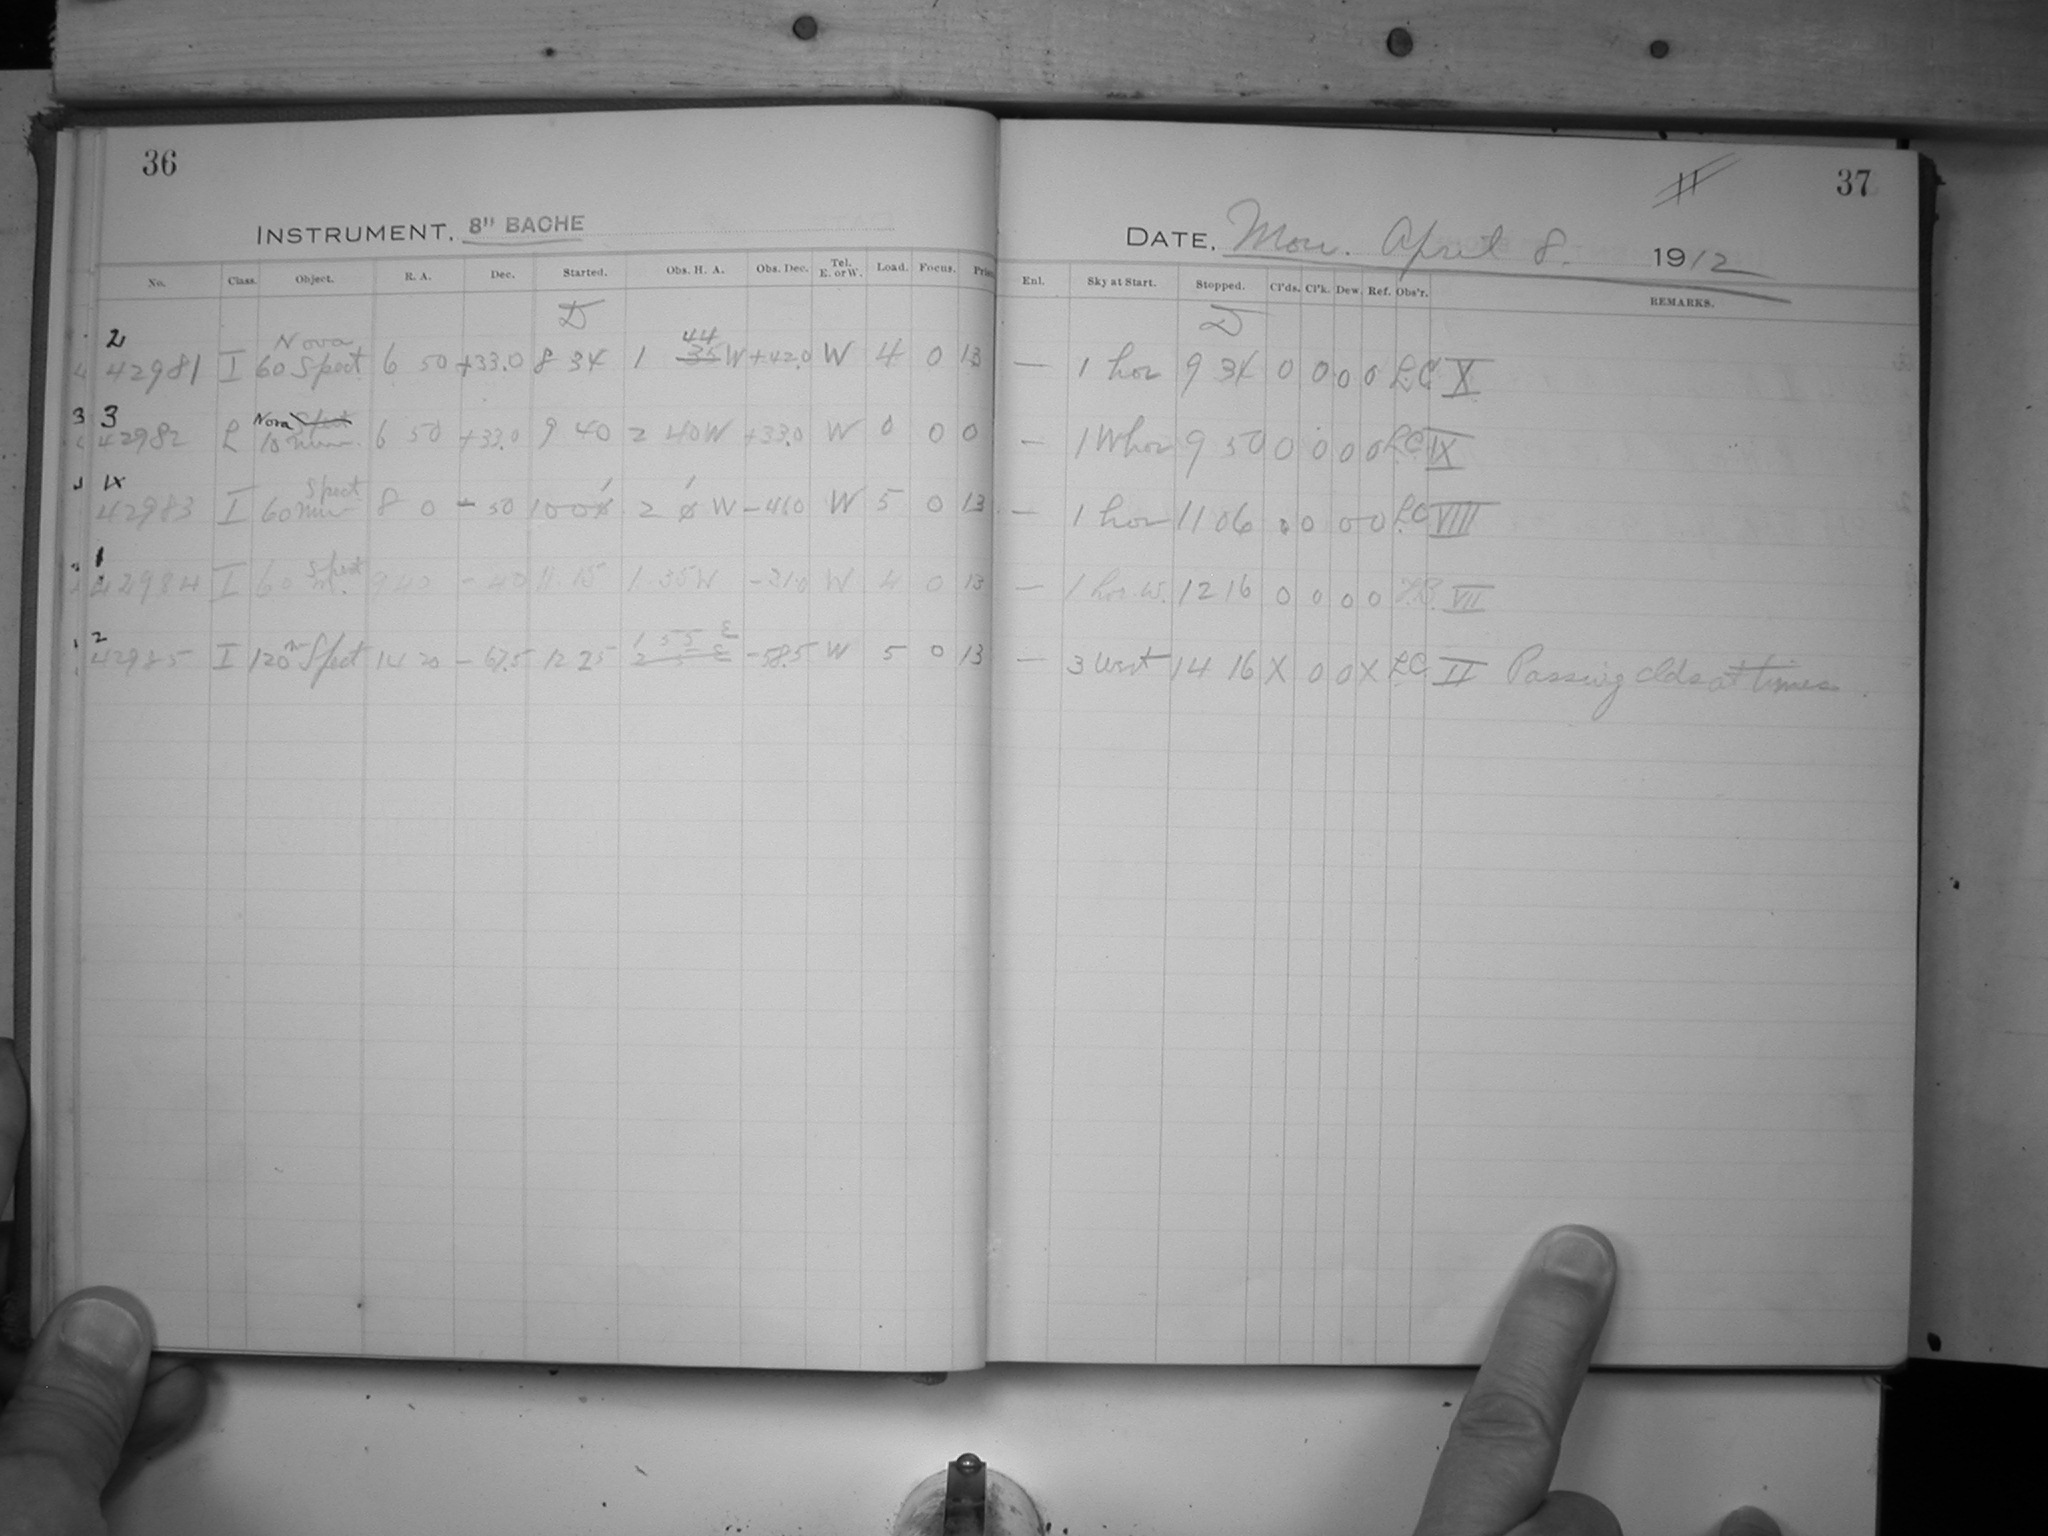 36
INSTRUMENT. 8" BACHE
No. Class. Object. R. A. Dec. Started. Obs. H. A. Obs. Dec. Tel. E. or W. Load. Focus.
D
2
Nova
44
42981 I 60 Spect 6 50 +33.0 8 34 1 35 W +42.0 W 4 0 13
3 3
Nova Spect
42982 L 10 min. 6 50 +33.0 9 40 2 40W +33.0 W 0 0 0
Spect
42983 I 60 min 8 0 - 50 2 W -41.0 W 5 0 13
1
Spect
42984 I 60 m. 9 40 - 40 11 15 1 35W -31.0 W 4 0 13
2
1 55 E
42985 I 120m Spect 14 20 - 67.5 12 25 2 5 E -58.5 W 5 0 13
37
DATE. Mon. April 8. 1912
Enl. Sky at Start. Stopped. Cl'ds. Cl'k. Dew. Ref. Obs'r. REMARKS.
D
— 1 hor 9 34 0 0 0 0 L.C X
— 1 W hor 9 50 0 0 0 0 L.C. IX
— 1 hor 11 06 0 0 0 0 L.C VIII
— 1 hor. W. 12 16 0 0 0 0 VII
— 3 West 14 16 X 0 0 X L.C. II Passing clds at times.